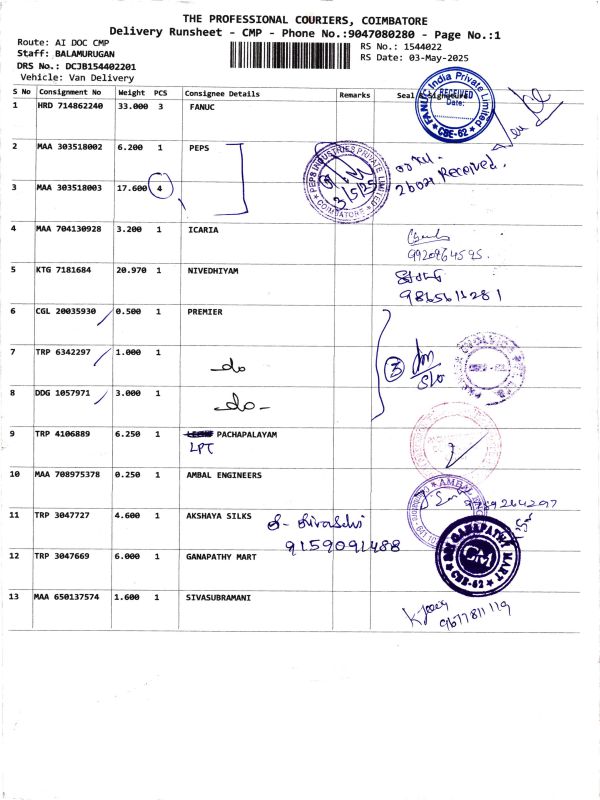 THE PROFESSIONAL COURIERS, COIMBATORE
Delivery Runsheet - CMP - Phone No.:9047080280 - Page No.:1
Route: AI DOC CMP
Staff: BALAMURUGAN
DRS No.: DCJB154402201
Vehicle: Van Delivery
RS No.: 1544022
RS Date: 03-May-2025
S No Consignment No Weight PCS Consignee Details Remarks Seal & Signature
1 HRD 714862240 33.000 3 FANUC
FANUC India Private Limited
RECEIVED
Date:
CBE-62
2 MAA 303518002 6.200 1 PEPS
PEPS INDUSTRIES PRIVATE LIMITED
COIMBATORE
3/5/25
Received.
3 MAA 303518003 17.600 4
4 MAA 704130928 3.200 1 ICARIA
9920964595.
5 KTG 7181684 20.970 1 NIVEDHIYAM
9865611281
6 CGL 20035930 0.500 1 PREMIER
7 TRP 6342297 1.000 1 do
3
8 DDG 1057971 3.000 1 do
9 TRP 4106889 6.250 1 PACHAPALAYAM
LPT
10 MAA 708975378 0.250 1 AMBAL ENGINEERS
AMBAL
11 TRP 3047727 4.600 1 AKSHAYA SILKS
9159091488
12 TRP 3047669 6.000 1 GANAPATHY MART
SRI GANAPATHY MART
CBE-62
13 MAA 650137574 1.600 1 SIVASUBRAMANI
9677811119